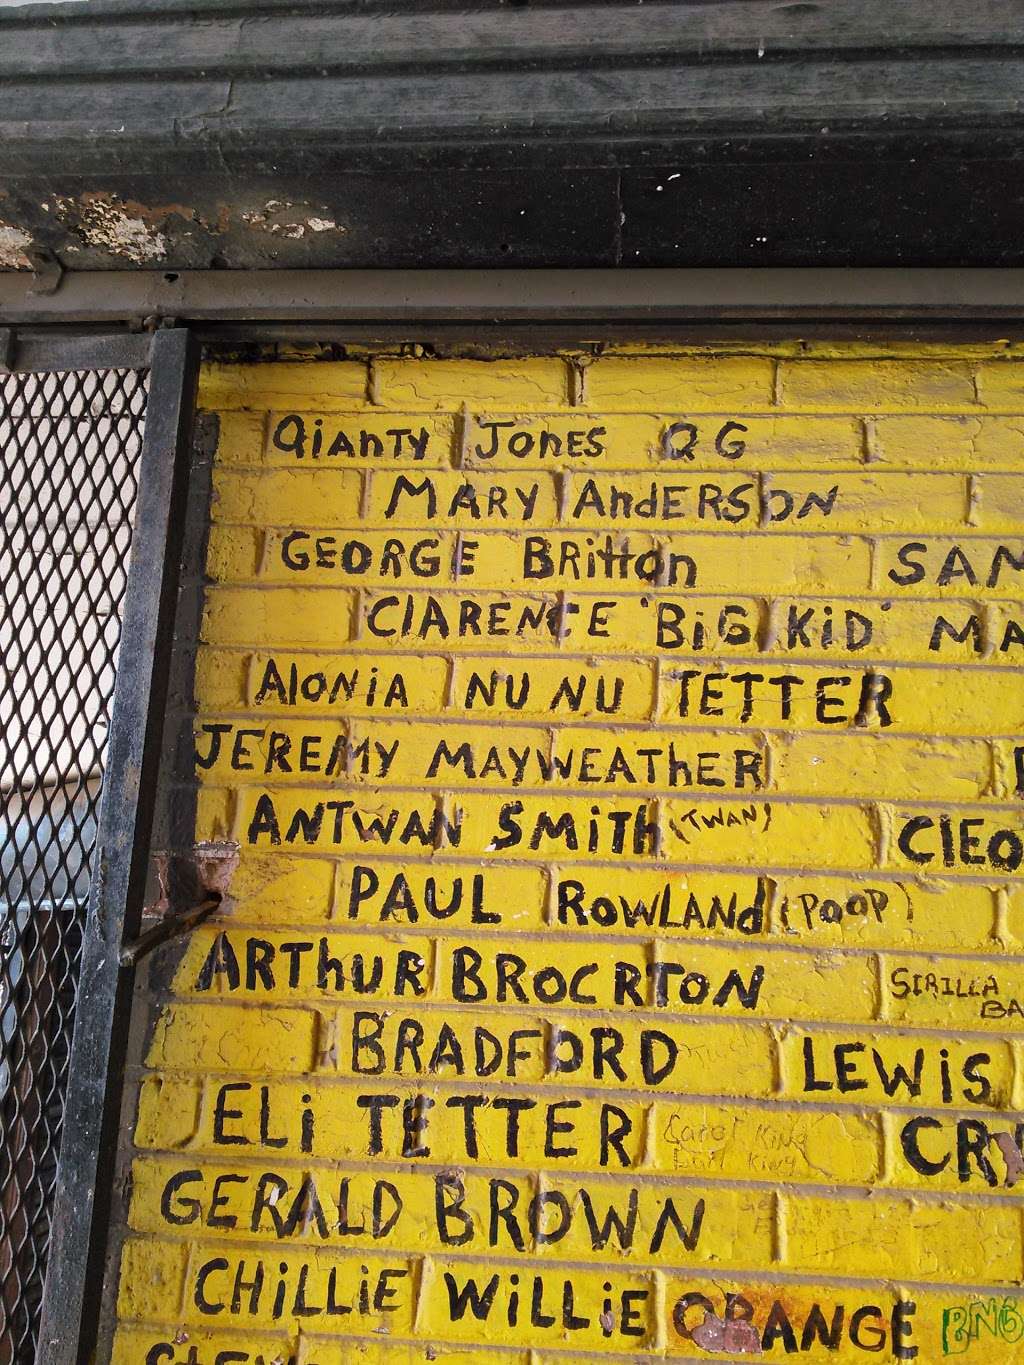 QiANTY JONES QG
MARY AndERSON
GEORGE BRitton SAM
ClARENCE "BiG KiD" MA
AlONiA NU NU TETTER
JEREMY MAYWEAThER
ANTWAN SMiTh (TWAN) ClEO
PAUL ROWLANd (POOP)
ARThUR BROCRTON SIRILLA
BA
BRADFORD LEWiS
ELi TETTER Carol King CRY
GERALD BROWN
CHiLLiE WiLLiE ORANGE BNG